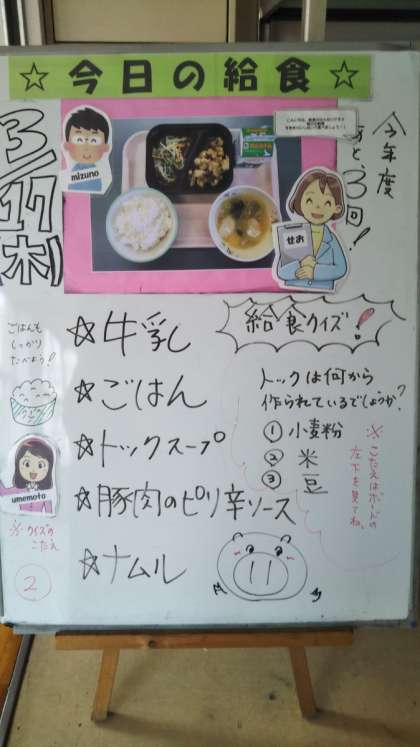 ☆今日の給食☆
3/17
(木)
mizuno
せお
今年度
あと3回!
ごはんも
しっかり
たべよう!
umemoto
※クイズの
こたえ
②
☆牛乳
☆ごはん
☆トックスープ
☆豚肉のピリ辛ソース
☆ナムル
給食クイズ!
トックは何から
作られているでしょうか?
①小麦粉
②米
③豆
※こたえはボードの
左下を見てね。